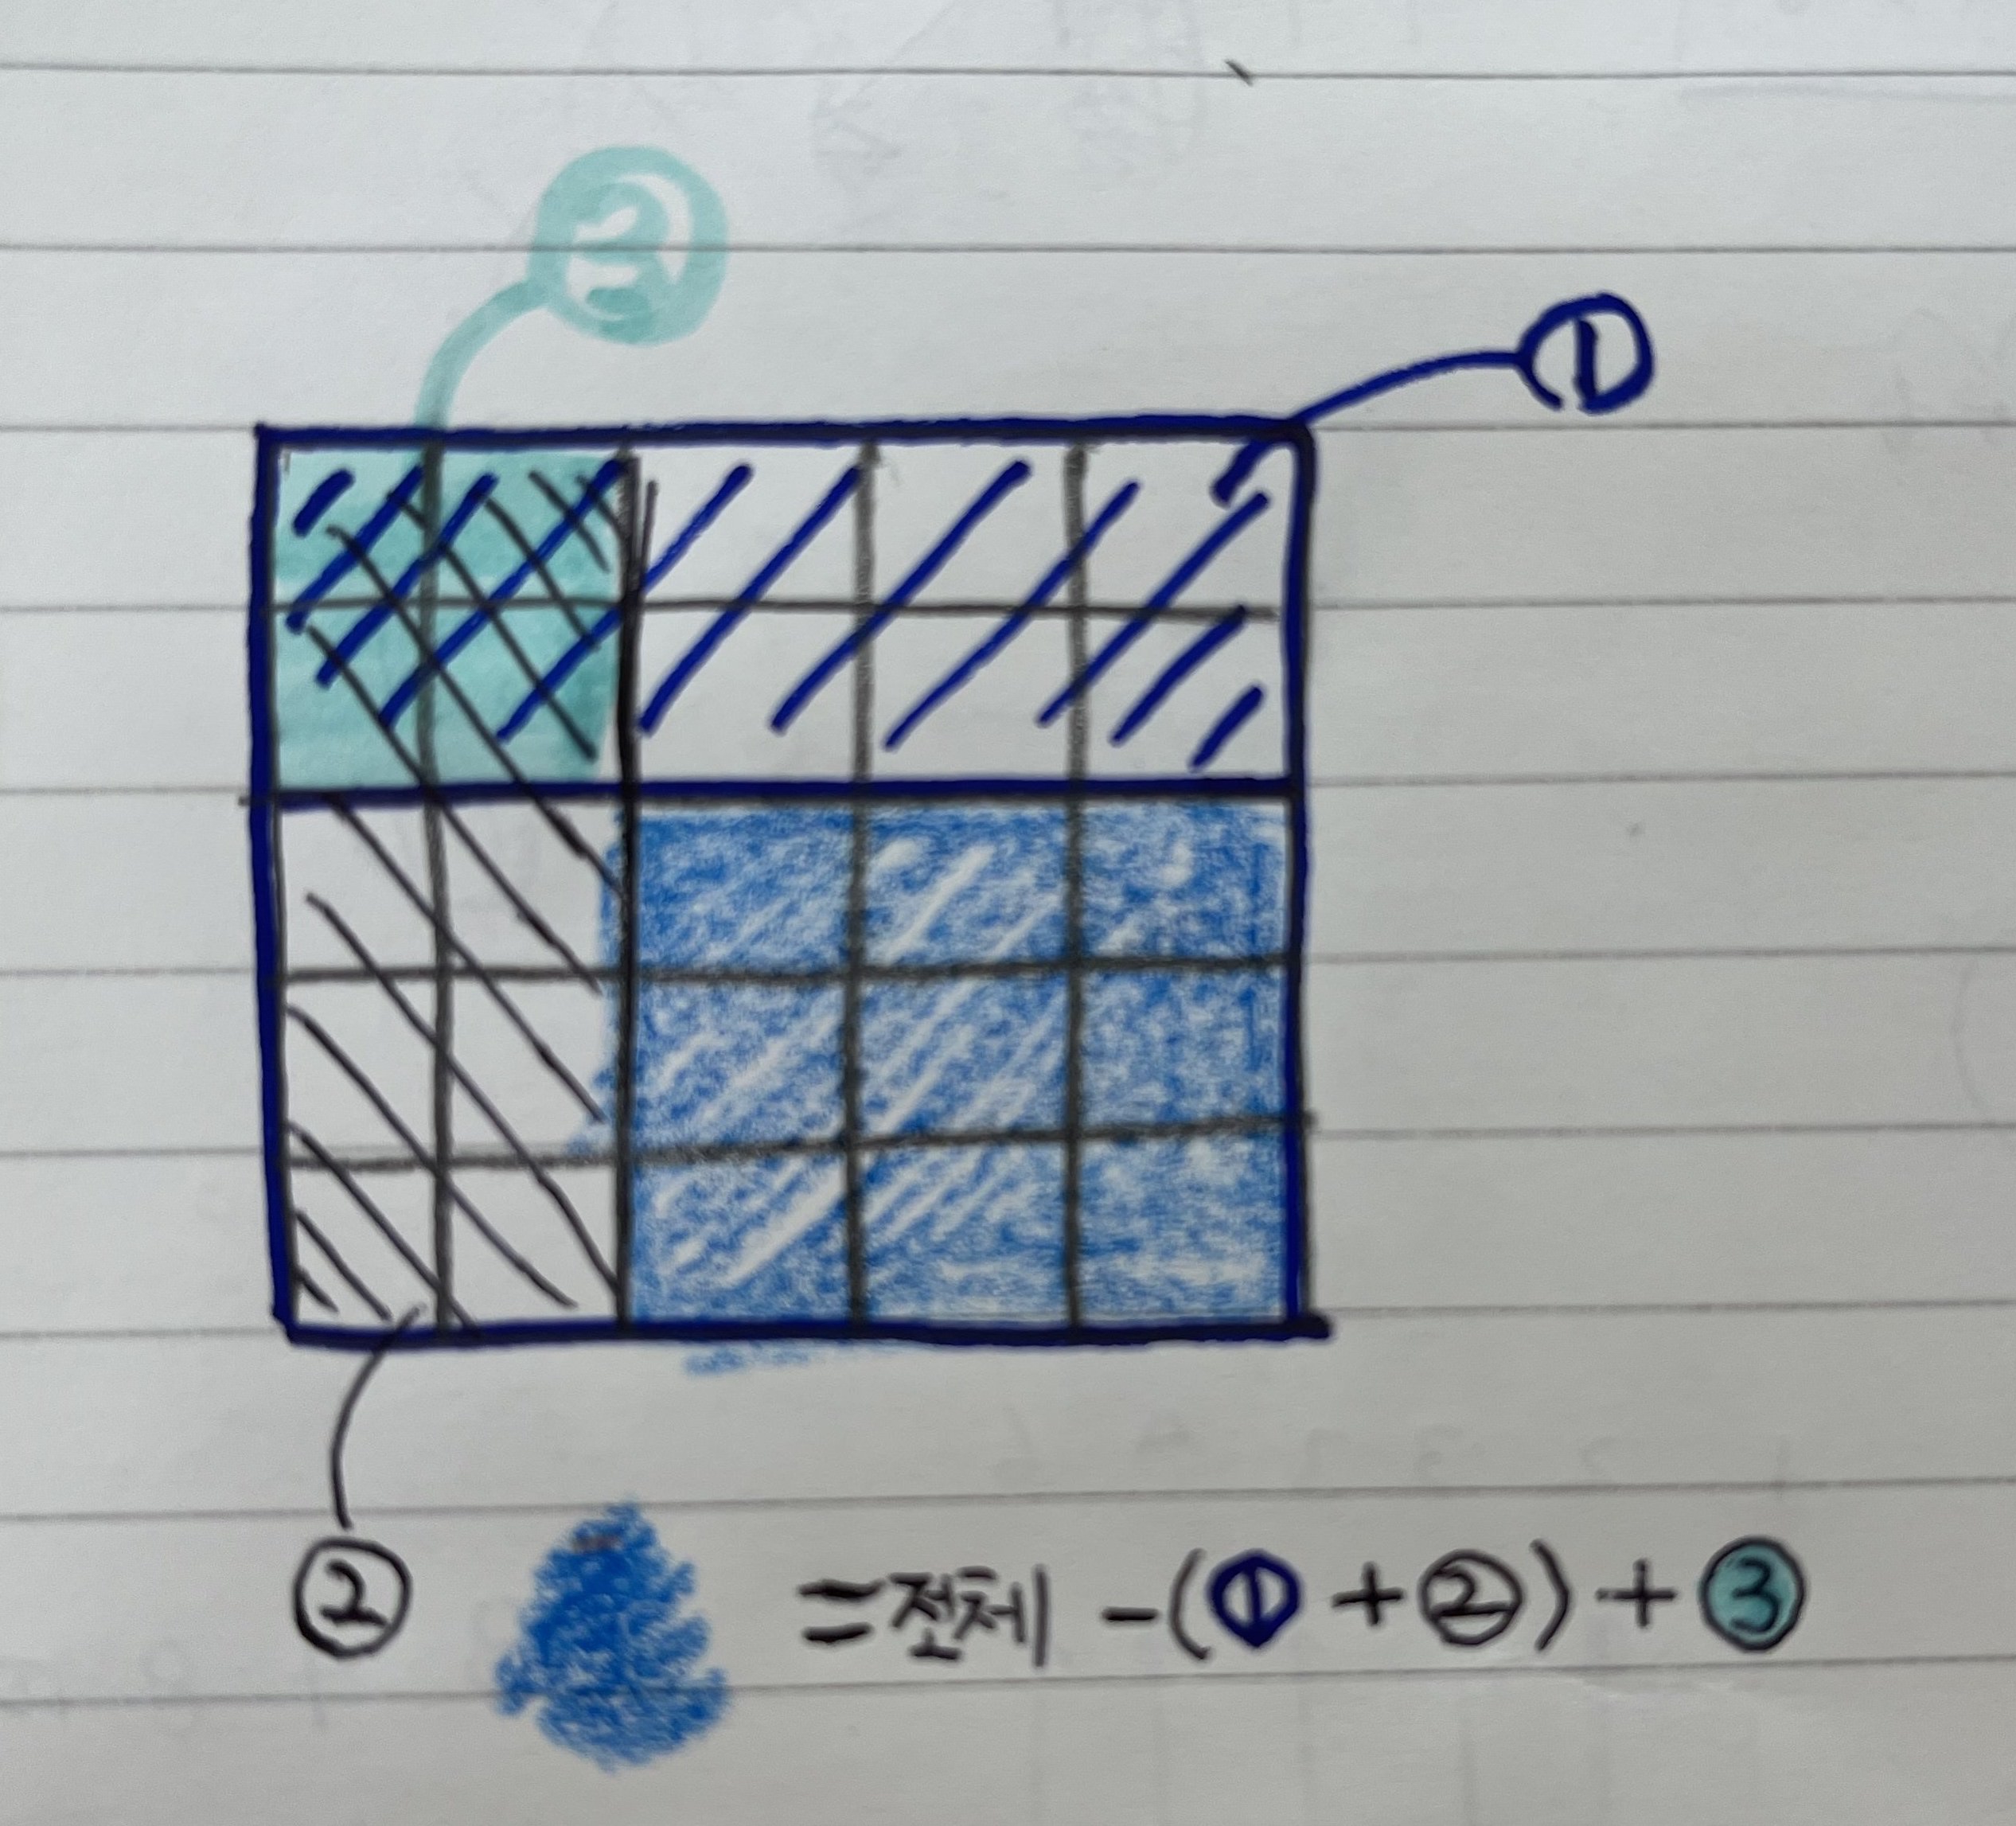 ③
①
②
=전체 -(① + ②) + ③